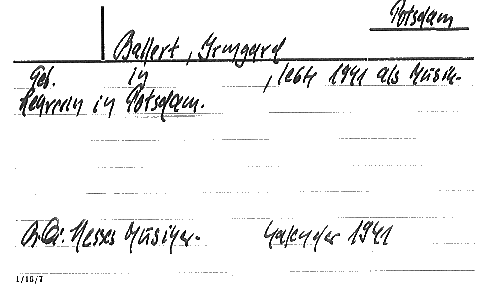 Potsdam
Ballert, Irmgard
Geb. in , lebte 1941 als Musik-
lehrerin in Potsdam.
Hesses Musiker- Kalender 1941
1/16/7